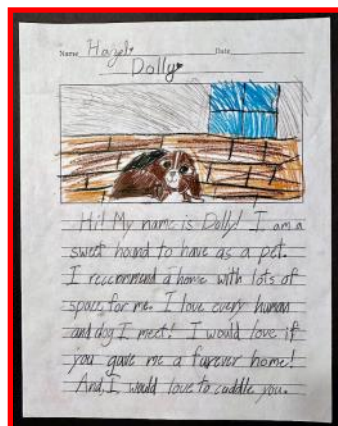 Name Hazel Date
Dolly
Hi! My name is Dolly! I am a
sweet hound to have as a pet.
I recommend a home with lots of
space for me. I love every human
and dog I meet! I would love if
you gave me a furever home!
And, I would love to cuddle you.